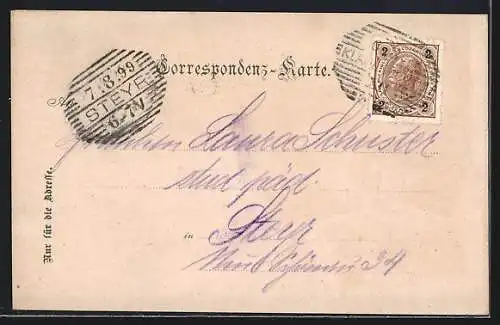 Correspondenz-Karte.
7.8.99
STEYR
6-7V
2 2
2 2
An
Fräulein Laura Schuster
stud. päd.
in Steyr
34
Nur für die Adresse.